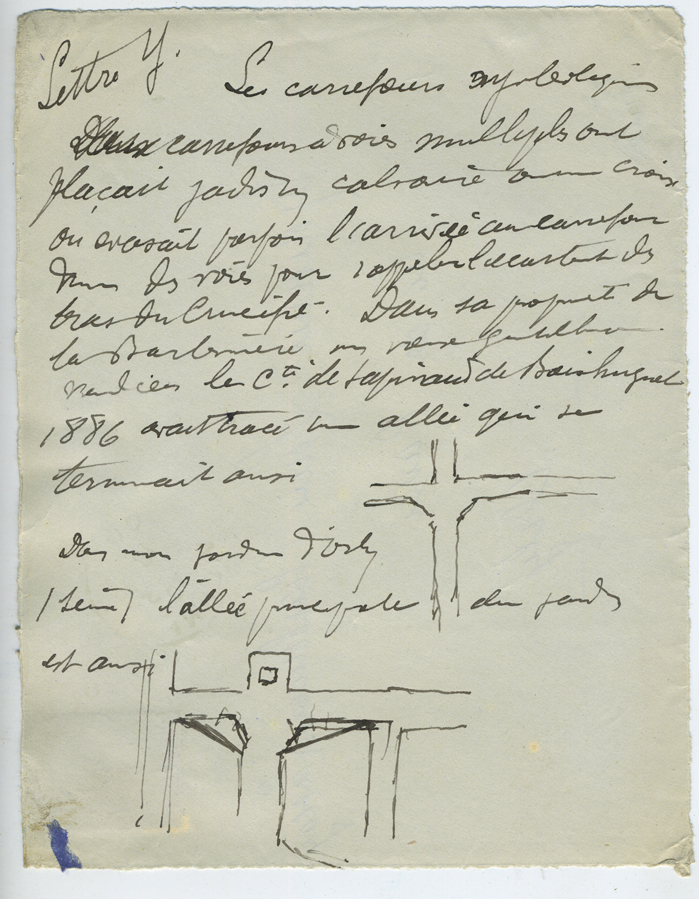 Lettre Y. Les carrefours symboliques
Aux carrefours à voies multiples on
plaçait jadis un calvaire ou une croix
on évasait parfois l'arrivée au carrefour
d'une des voies pour rappeler l'écartement des
bras du Crucifié. Dans sa propriété de
la un vieux
vendéen le Cte de de Boishuguet
1886 avait tracé une allée qui se
terminait ainsi
Dans mon jardin d'Orly
(Seine) l'allée principale du jardin
est ainsi